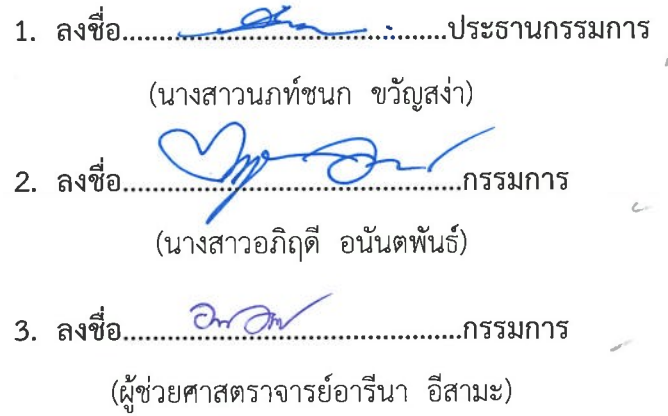 1. ลงชื่อ................................................ประธานกรรมการ
(นางสาวนภท์ชนก ขวัญสง่า)
2. ลงชื่อ................................................กรรมการ
(นางสาวอภิฤดี อนันตพันธ์)
3. ลงชื่อ................................................กรรมการ
(ผู้ช่วยศาสตราจารย์อารีนา อีสามะ)